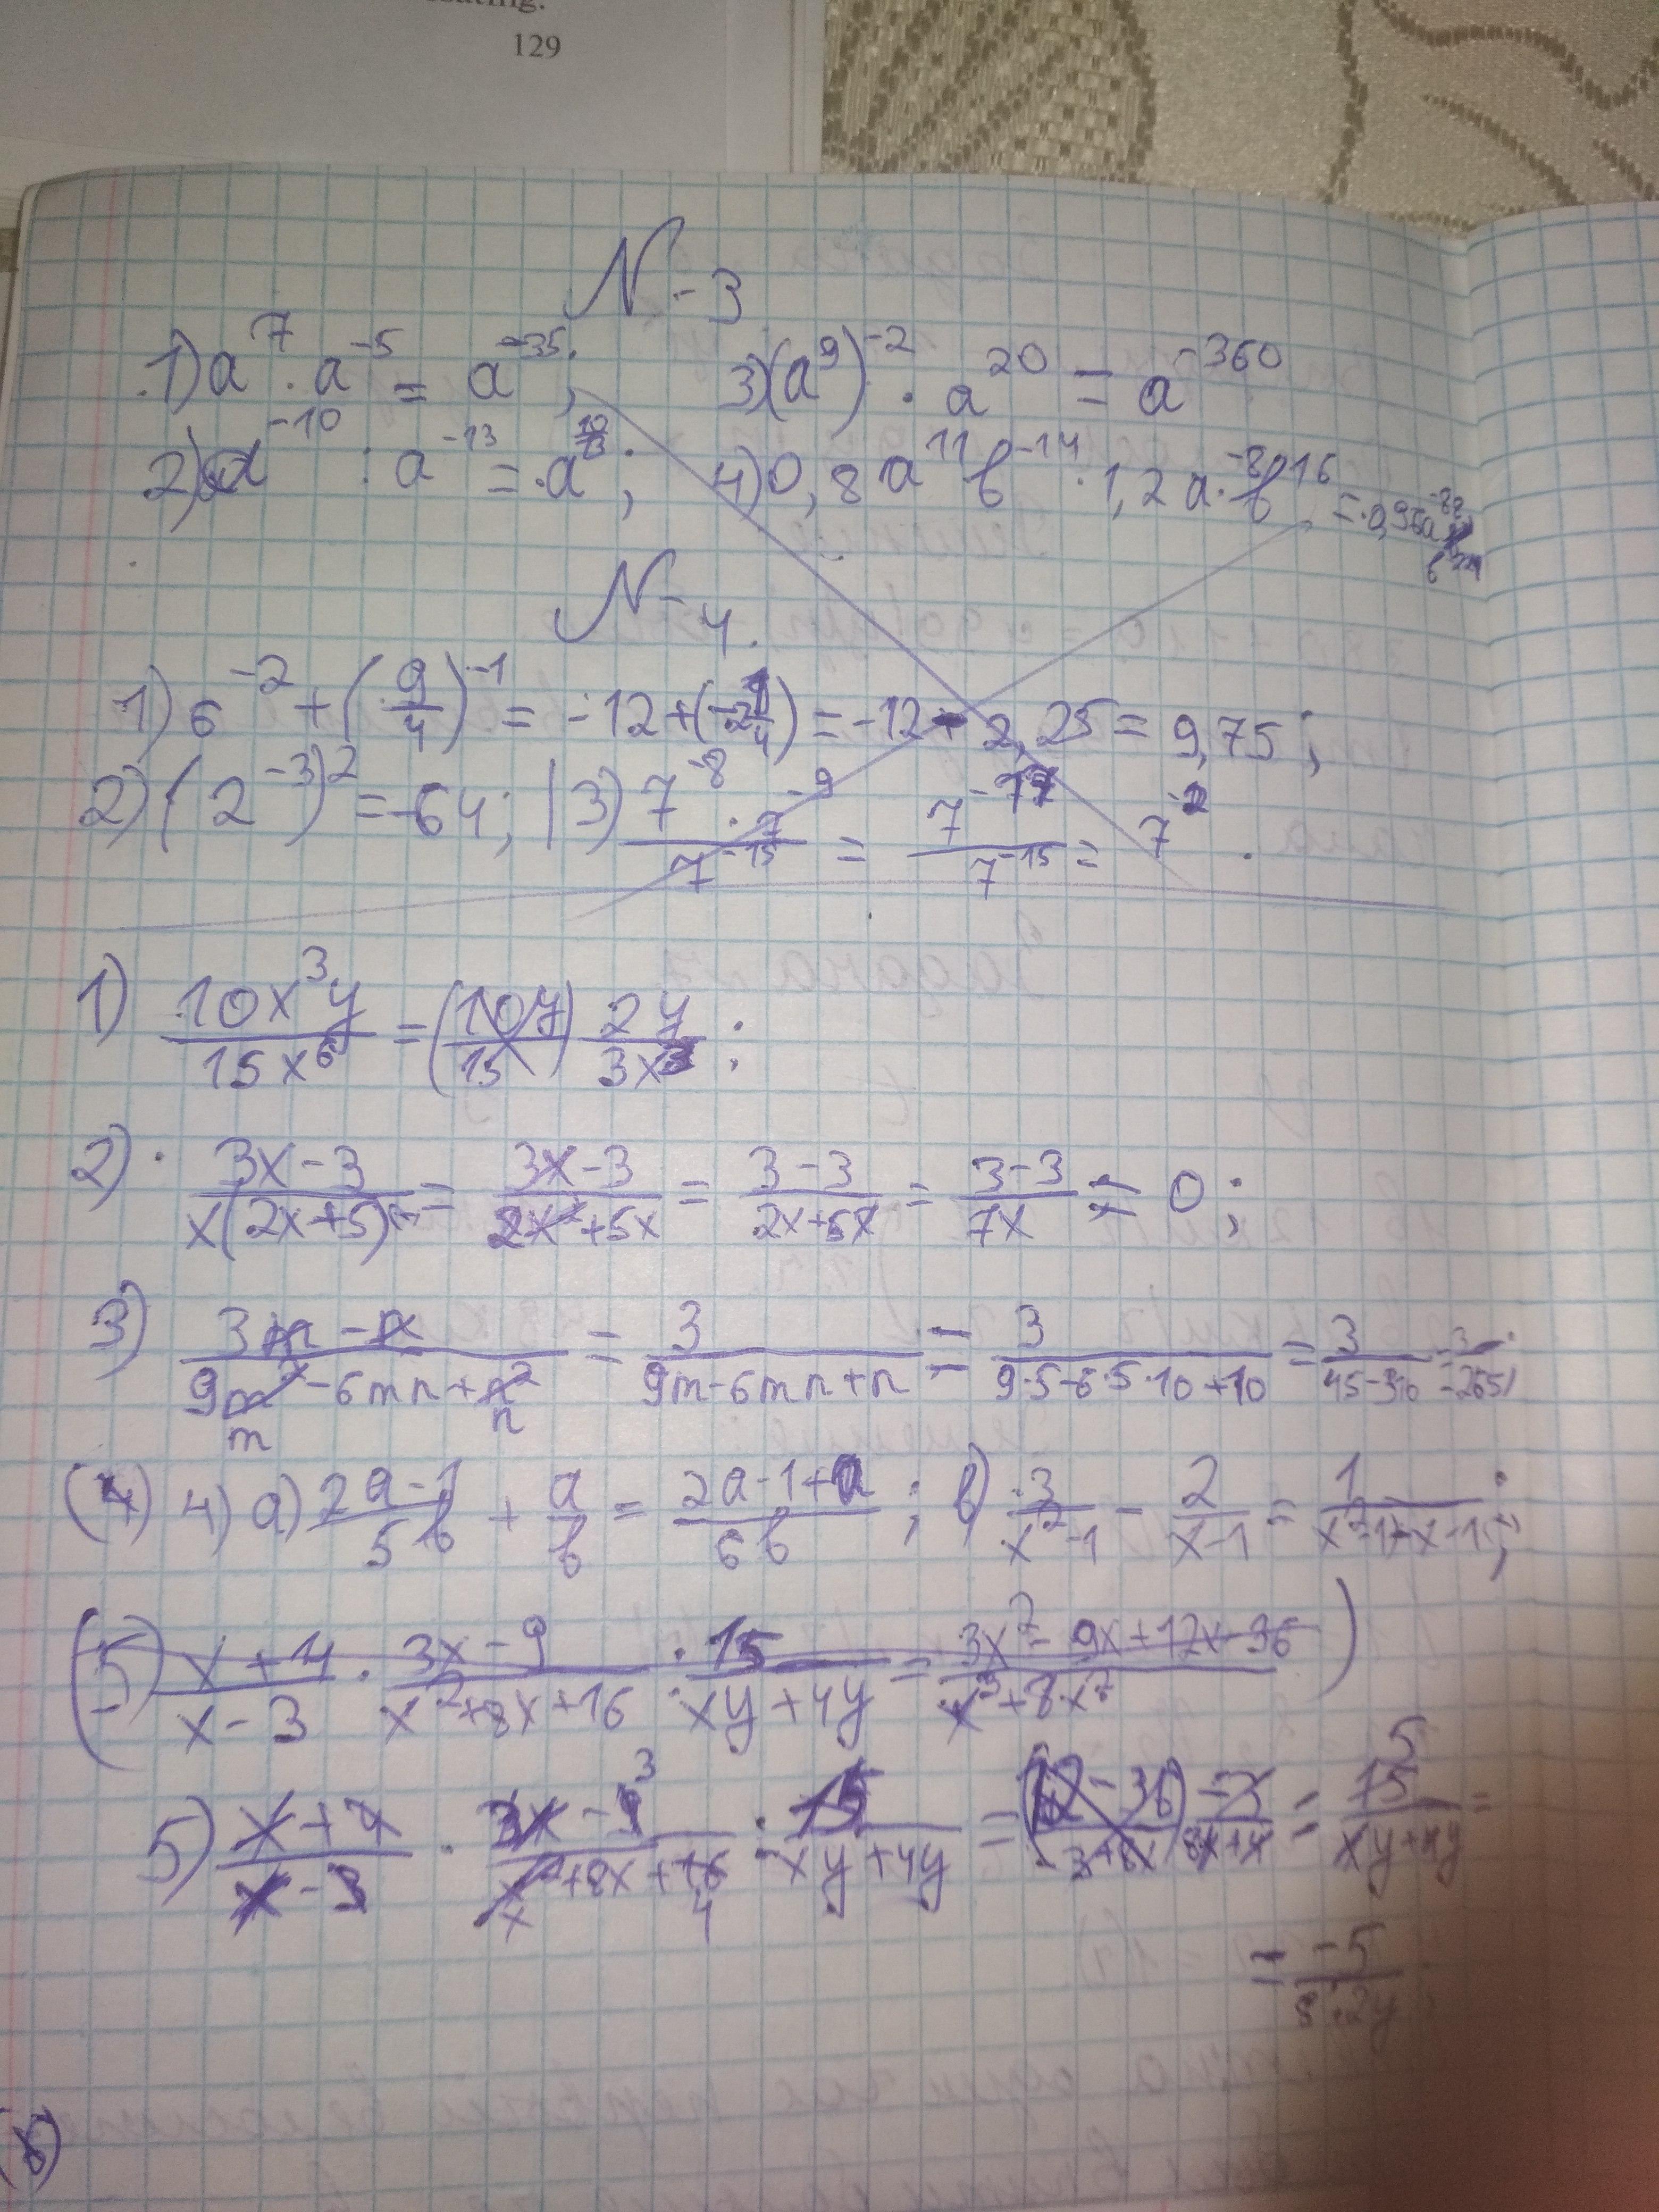 129
N-3
1) a⁷ · a⁻⁵ = a⁻³⁵;
3) (a⁹)⁻² · a²⁰ = a⁻³⁶⁰
2) a⁻¹⁰ : a⁻¹³ = a^(10/13);
4) 0,8a¹¹b⁻¹⁴ · 1,2a⁻⁸b¹⁶ = 0,96a⁻⁸⁸
N-4.
1) 6⁻² + (9/4)⁻¹ = -12 + = -12 - 2,25 = 9,75;
2) (2⁻³)² = -64; | 3) (7⁻⁸ · 7⁻⁹)/7⁻¹⁵ = 7⁻¹⁷/7⁻¹⁵ = 7⁻².
1) 10x³y/15x⁶ = (10y/15) 2y/3x³;
2) (3x-3)/(x(2x+5)) = (3x-3)/(2x²+5x) = (3-3)/(2x+5x) = (3-3)/7x = 0;
3) (3m-n)/(9m²-6mn+n²) = 3/(9m-6mn+n) = 3/(9·5-6·5·10+10) = 3/(45-310) =
(4) 4) a) (2a-1)/5b + a/b = (2a-1+a)/6b; b) 3/(x²-1) - 2/(x-1) = 1/(x²-1-x-1);
(5) (x+4)/(x-3) · (3x-9)/(x²+8x+16) : 15/(xy+4y) = (3x²-9x+12x-36)/(x³+8x²)
5) (x+4)/(x-3) · (3x-9)/(x²+8x+16) : 15/(xy+4y) = = 15/(xy+4y) =
= -5/